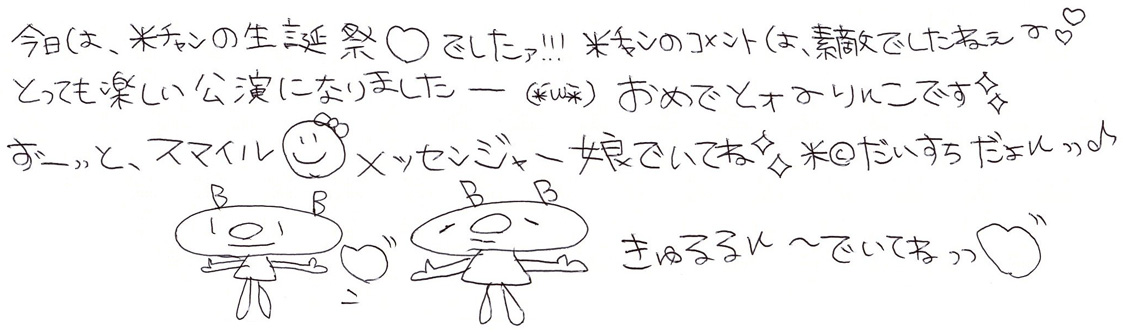 今日は、米チャンの生誕祭♡でしたァ!!! 米チャンのコメントは、素敵でしたねぇ〜♡♡
とっても楽しい公演になりましたー (*ω*) おめでとォ〜りんこです✧✧
ずーッと、スマイル メッセンジャー娘でいてね✧✧ 米©だいすちだょんッッ♪
きゅるるん〜でいてねッッ♡